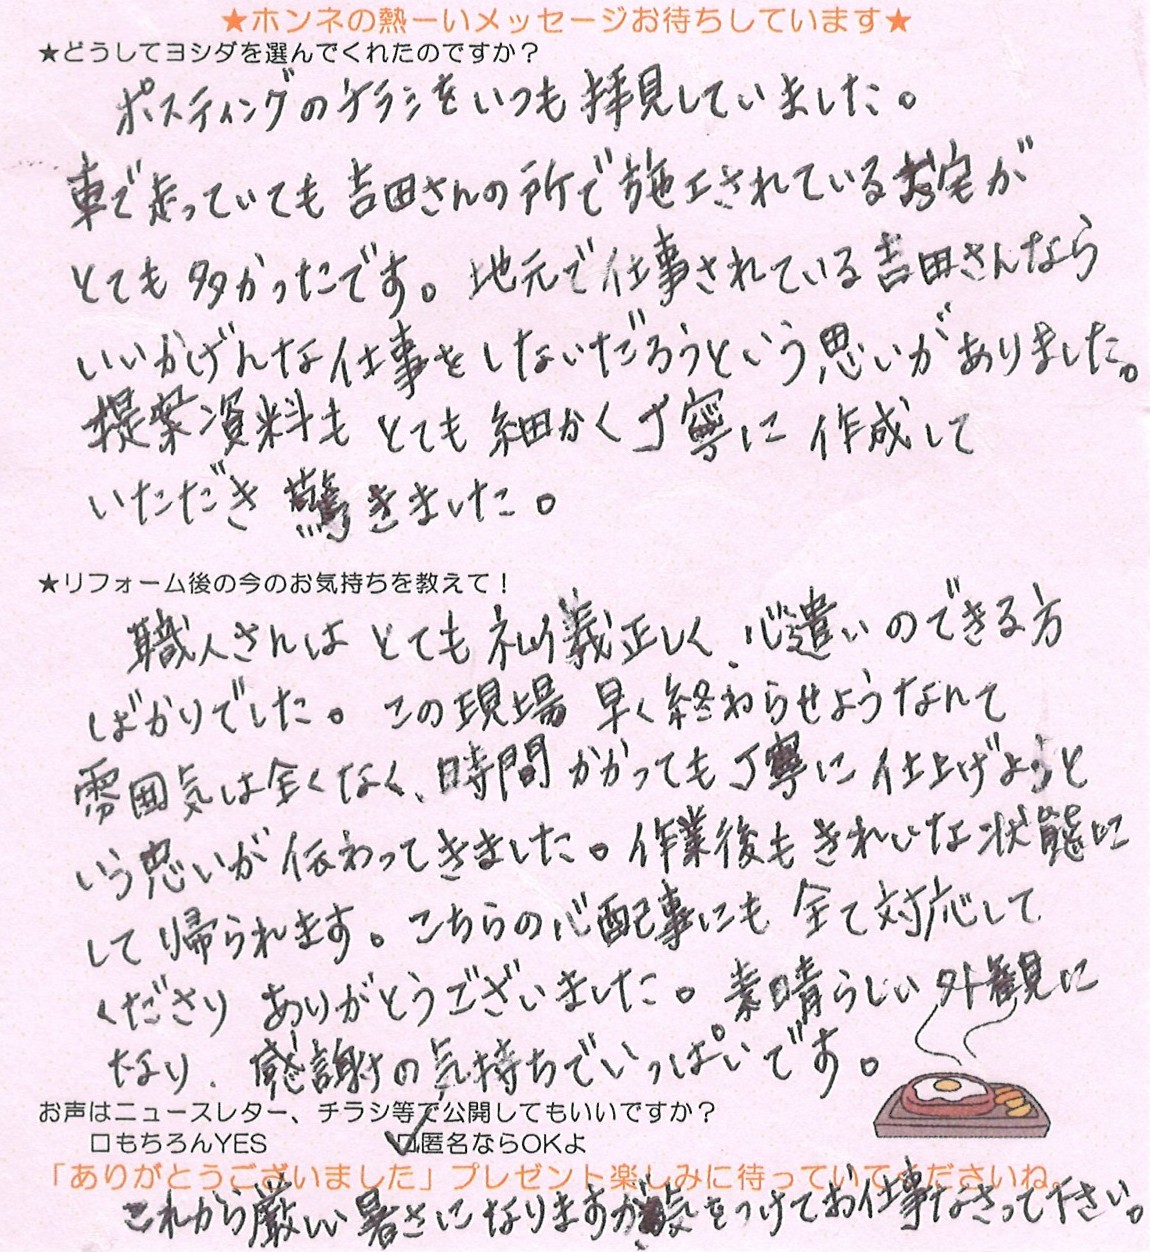 ★ホンネの熱ーいメッセージお待ちしています★
★どうしてヨシダを選んでくれたのですか？
ポスティングのチラシをいつも拝見していました。
車で走っていても吉田さんの所で施工されているお宅が
とても多かったです。地元で仕事されている吉田さんなら
いいかげんな仕事をしないだろうという思いがありました。
提案資料もとても細かく丁寧に作成して
いただき驚きました。
★リフォーム後の今のお気持ちを教えて！
職人さんはとても礼義正しく、心遣いのできる方
ばかりでした。この現場早く終わらせようなんて
雰囲気は全くなく、時間かかっても丁寧に仕上げようと
いう思いが伝わってきました。作業後もきれいな状態に
して帰られます。こちらの心配事にも全て対応して
くださりありがとうございました。素晴らしい外観に
なり、感謝の気持ちでいっぱいです。
お声はニュースレター、チラシ等で公開してもいいですか？
□もちろんYES ☑匿名ならOKよ
「ありがとうございました」プレゼント楽しみに待っていてくださいね。
これから厳しい暑さになりますが気をつけてお仕事なさって下さい。